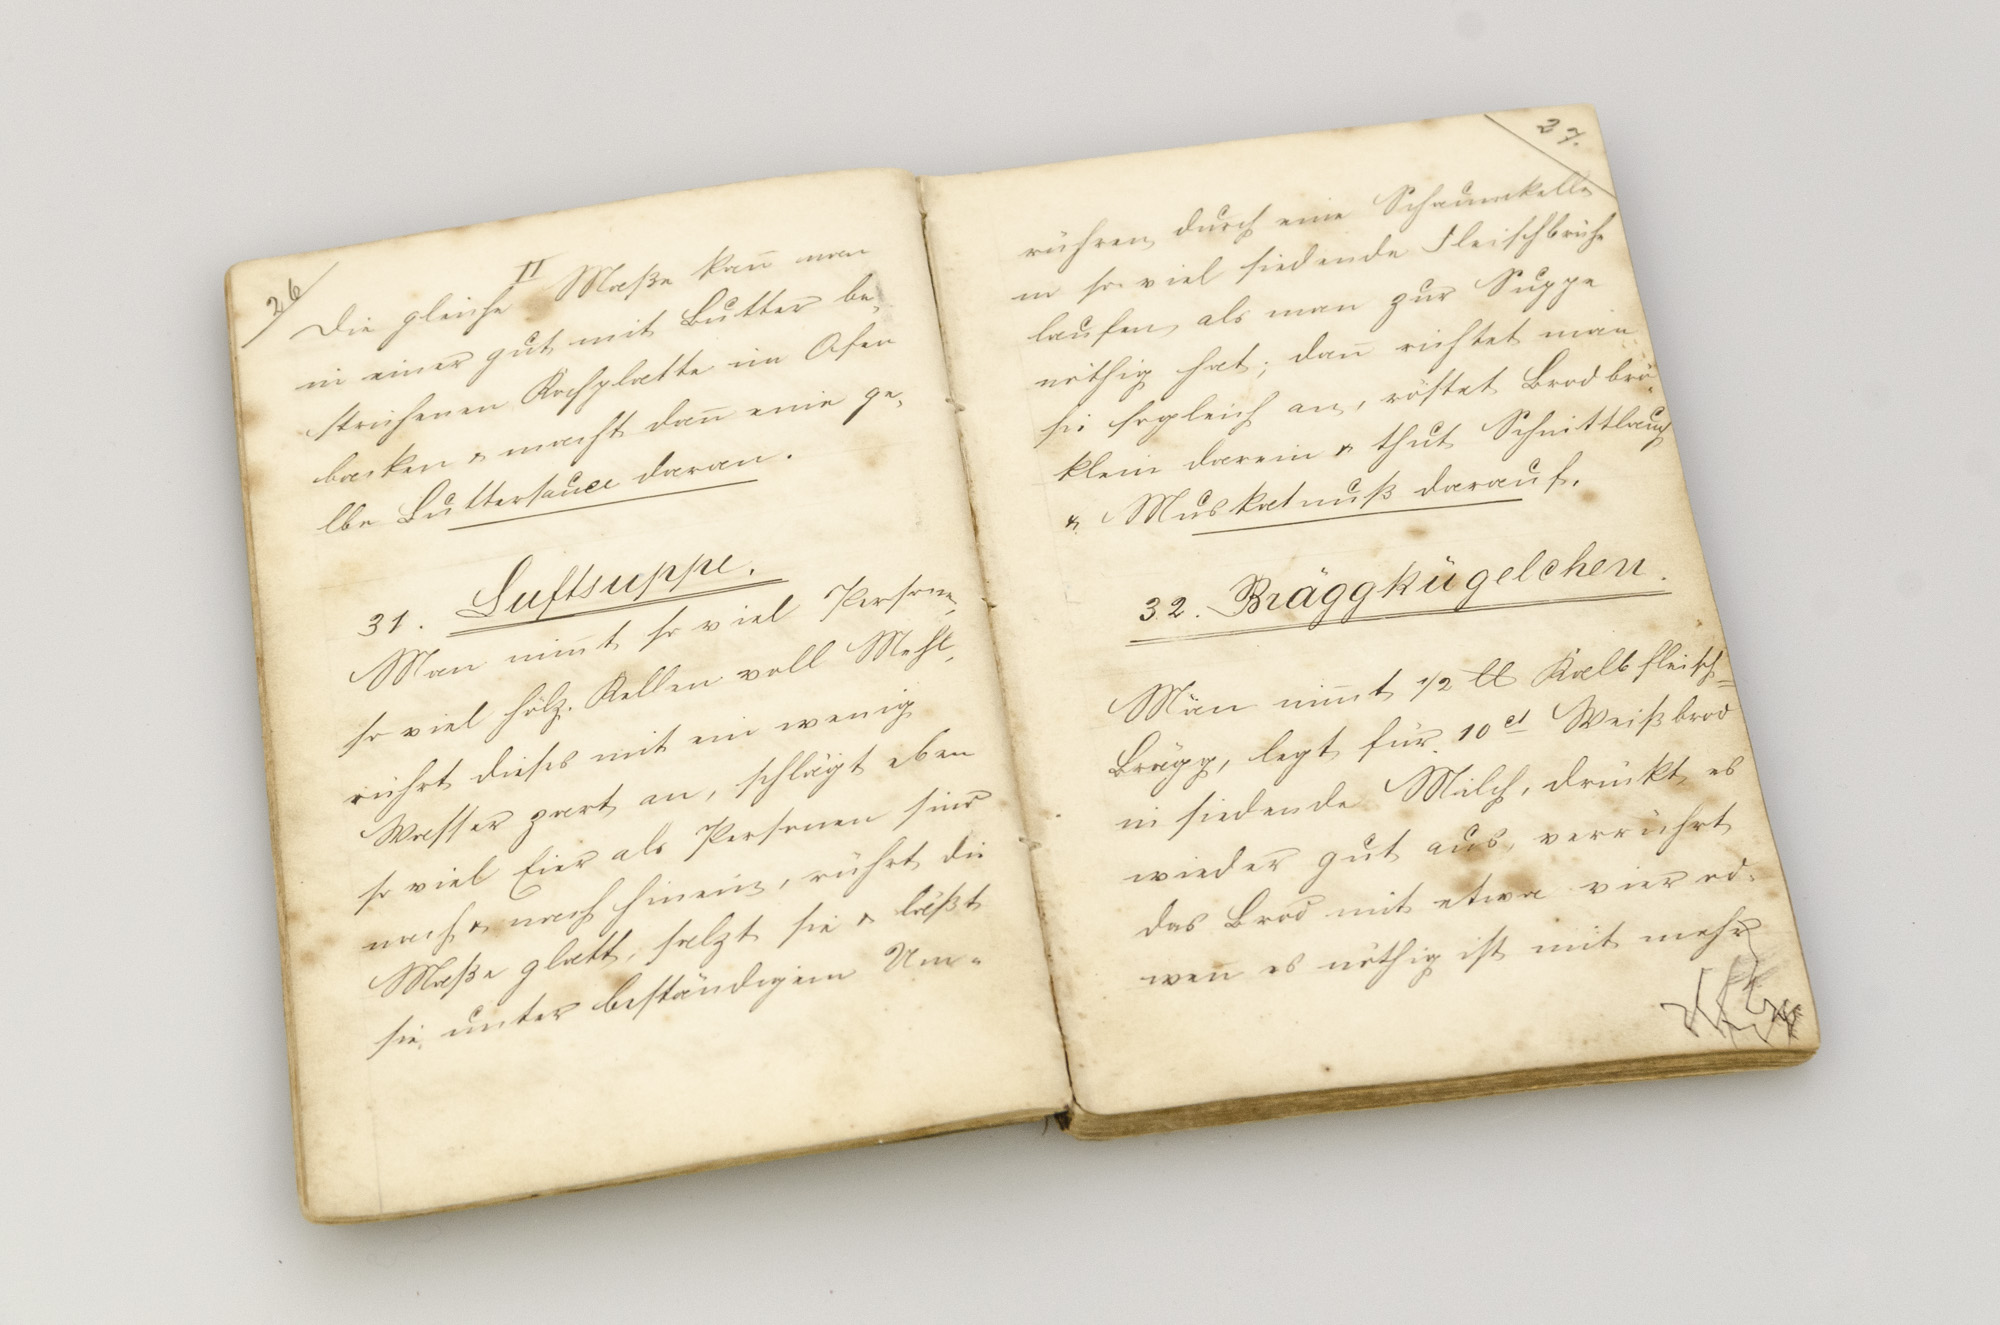 26
II
Die gleiche Maße kan̅ man
in einer gut mit Butter be-
strichenen Kochplatte im Ofen
backen & macht dan̅ eine ge-
lbe Buttersauce daran.
31. Luftsuppe.
Man nim̅t so viel Persone,
so viel hölz. Kellen voll Mehl,
rührt dieses mit ein wenig
Wasser zart an, schlägt eben
so viel Eier als Personen sind
nach & nach hinein, rührt die
Maße glatt, salzt sie & läßt
sie unter beständigem Um-
27.
rühren durch eine Schaumkelle
in so viel siedende Fleischbrühe
laufen, als man zur Suppe
nöthig hat; dan̅ richtet man
sie sogleich an, röstet Brodbrö-
klein darein & thut Schnittlauch
& Muskatnuß darauf.
32. Bräggkügelchen.
Man nim̅t 1/2 ℔ Kalbfleisch=
Brägg, legt für 10 ct Weißbrod
in siedende Milch, drückt es
wieder gut aus, verrührt
das Brod mit etwa vier od.
wen̅ es nöthig ist mit mehr